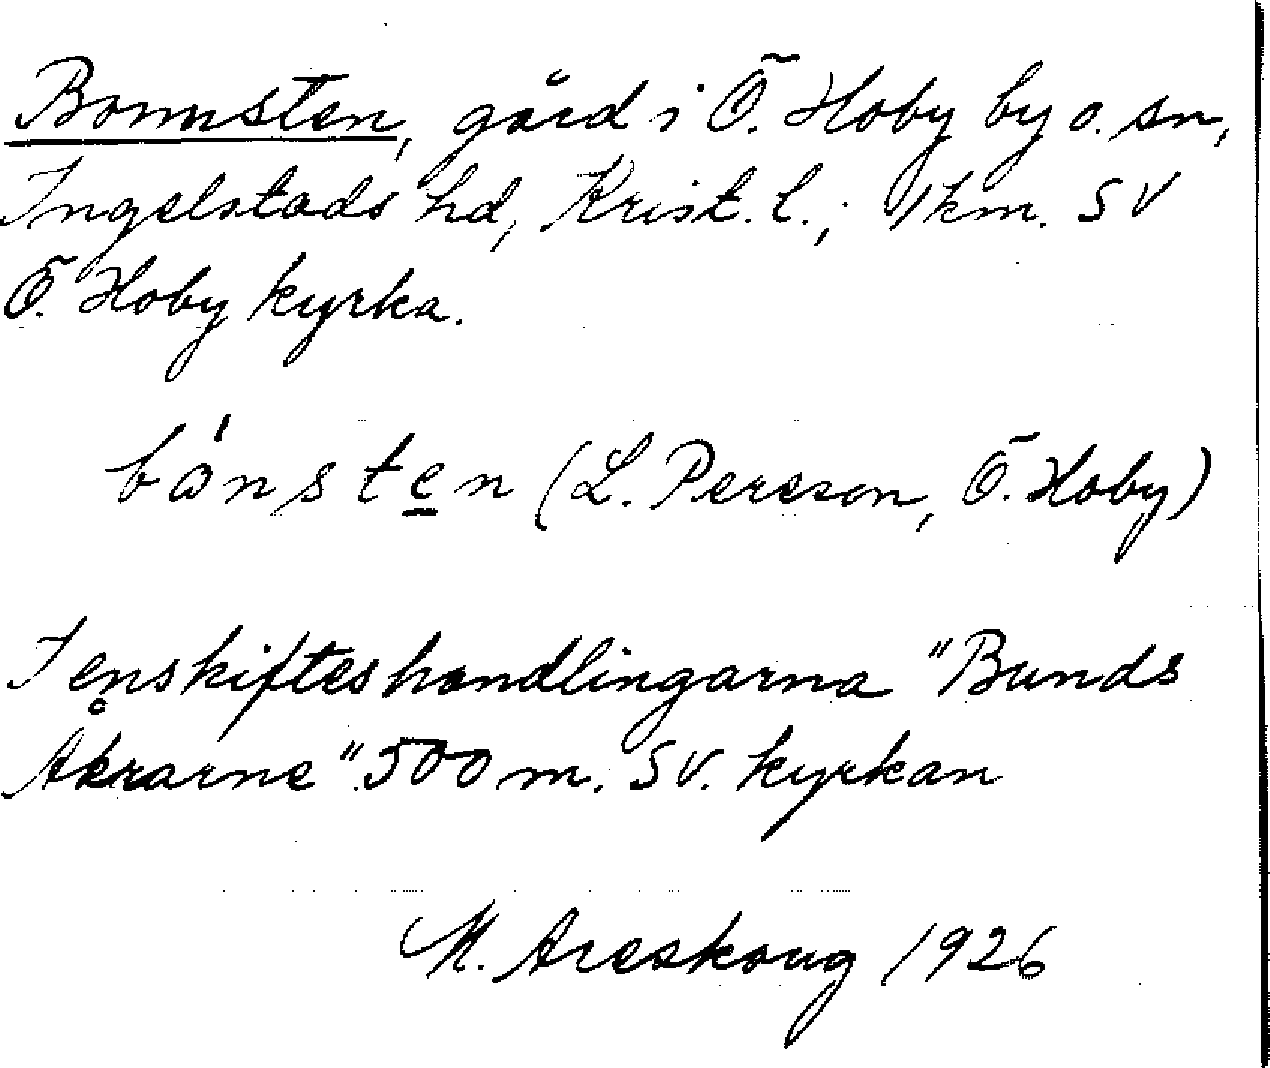 Bonnsten, gård i Ö. Hoby by o. sn,
Ingelstads hd, Krist. l.; 1 km. SV
Ö. Hoby kyrka.
bónsten (L. Persson, Ö. Hoby)
I enskifteshandlingarna "Bunds
Åkrarne" 500 m. SV. kyrkan
M. Areskoug 1926